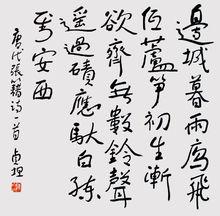 邊城暮雨雁飛
低蘆笋初生漸
欲齊無數鈴聲
遥過磧應馱白練
到安西
唐代張籍詩一首 貞